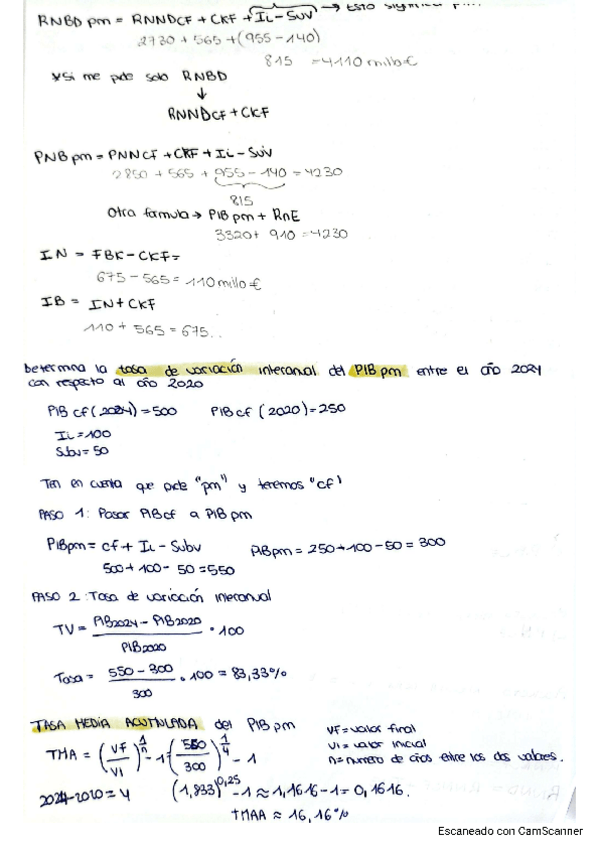 → Esto
RNBD pm = RNNDCF + CKF + Ii - Suv
2730 + 565 + (955 - 140)
815 = 4110 millo €
* Si me pide solo RNBD
↓
RNNDCF + CKF
PNB pm = PNNCF + CKF + Ii - Suv
2850 + 565 + 955 - 140 = 4230
815
Otra formula → PIB pm + RnE
3320 + 910 = 4230
IN = FBK - CKF =
675 - 565 = 110 millo €
IB = IN + CKF
110 + 565 = 675..
Determina la tasa de variación interanual del PIB pm entre el año 2024
con respecto al año 2020
PIB cf (2024) = 500 PIB cf (2020) = 250
Ii = 100
Subv = 50
Ten en cuenta que pide "pm" y tenemos "cf"
PASO 1: Pasar PIBcf a PIB pm
PIBpm = cf + Ii - Subv PIBpm = 250 + 100 - 50 = 300
500 + 100 - 50 = 550
PASO 2: Tasa de variación interanual
TV = PIB2024 - PIB2020 / PIB2020 · 100
Tasa = 550 - 300 / 300 · 100 = 83,33%
TASA MEDIA ACUMULADA del PIB pm
VF = valor final
Vi = valor inicial
n = numero de años entre los dos valores.
TMA = (VF / Vi)^1/n - 1 = (550 / 300)^1/4 - 1
2024 - 2020 = 4 (1,833)^0,25 - 1 ≈ 1,1616 - 1 = 0,1616.
TMAA ≈ 16,16%
Escaneado con CamScanner